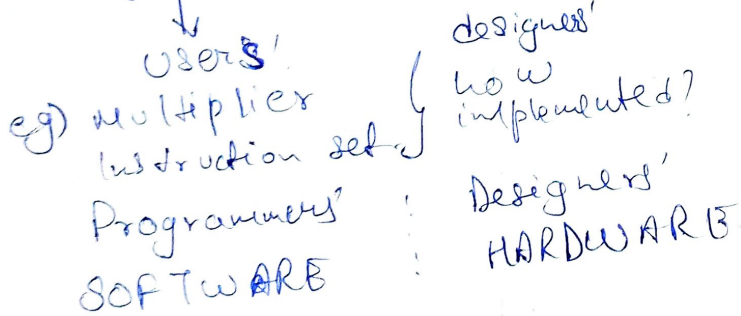 users'
eg) Multiplier
Instruction set
Programmers'
SOFTWARE
designers'
how
implemented?
Designers'
HARDWARE